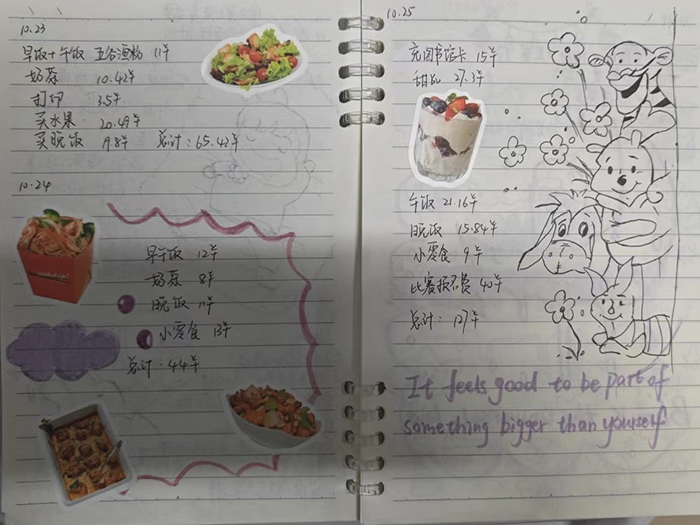 10.23
早饭+午饭 五谷渔粉 11元
奶茶 10.42元
打印 3.5元
买水果 20.49元
买晚饭 19.8元 总计：65.42元
10.24
早午饭 12元
奶茶 8元
晚饭 11元
小零食 13元
总计：44元
10.25
充图书馆卡 15元
甜品 27.3元
午饭 21.16元
晚饭 15.84元
小零食 9元
比赛报名费 40元
总计：127元
It feels good to be part of
something bigger than yourself